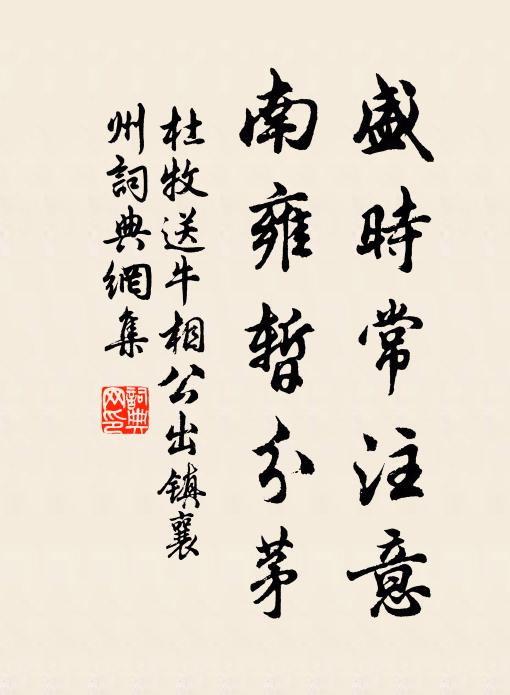 盛時常注意
南雍暫分茅
杜牧送牛相公出鎮襄
州詞典網集
詞典
网印